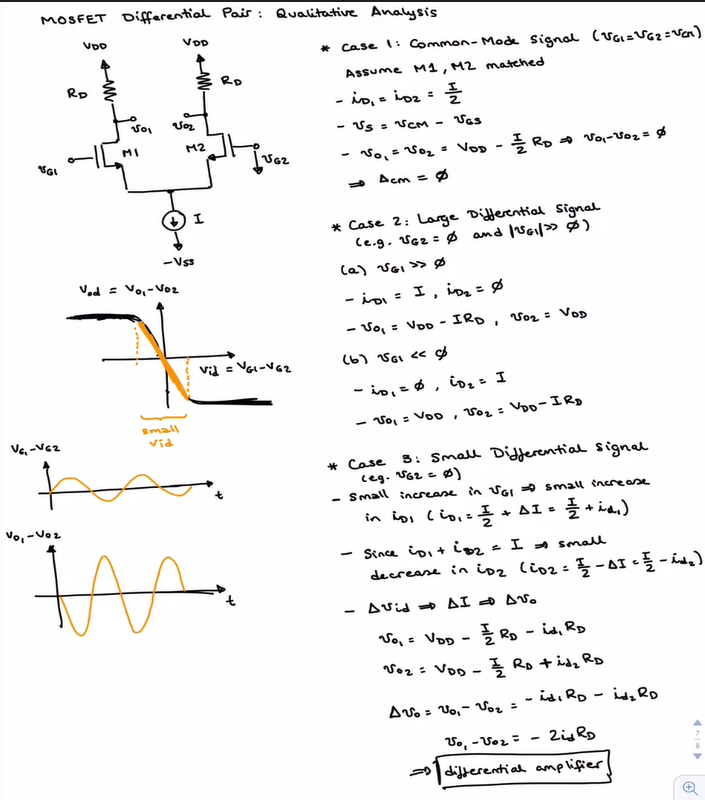 MOSFET Differential Pair: Qualitative Analysis
VDD
VDD
RD
RD
vo1
vo2
M1
M2
vG1
vG2
I
-VSS
Vod = Vo1-Vo2
Vid = VG1-VG2
small
Vid
VG1-VG2
t
Vo1-Vo2
t
* Case 1: Common-Mode Signal (vG1=vG2=vcm)
Assume M1, M2 matched
- iD1 = iD2 = I/2
- vS = vCM - vGS
- vo1 = vo2 = VDD - I/2 RD ⇒ vo1-vo2 = ∅
⇒ Acm = ∅
* Case 2: Large Differential Signal
(e.g. vG2 = ∅ and |vG1| >> ∅)
(a) vG1 >> ∅
- iD1 = I, iD2 = ∅
- vo1 = VDD - IRD, vo2 = VDD
(b) vG1 << ∅
- iD1 = ∅, iD2 = I
- vo1 = VDD, vo2 = VDD - IRD
* Case 3: Small Differential Signal
(eg. vG2 = ∅)
- Small increase in vG1 ⇒ small increase
in iD1 (iD1 = I/2 + ΔI = I/2 + id1)
- Since iD1 + iD2 = I ⇒ small
decrease in iD2 (iD2 = I/2 - ΔI = I/2 - id2)
- Δvid ⇒ ΔI ⇒ Δvo
vo1 = VDD - I/2 RD - id1 RD
vo2 = VDD - I/2 RD + id2 RD
Δvo = vo1 - vo2 = -id1 RD - id2 RD
vo1 - vo2 = - 2id RD
⇒ differential amplifier
7
8